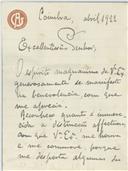 Coimbra, abril 1922
Excellentissimo Senhor,
O espirito magnanimo de V. Ex.
generosamente se manifesta
na benevolencia com que
me aprecia.
Reconheço quanto é
a distincção affectuosa
com que V. Ex. me honra
e me commove, porque
me desperta algumas da